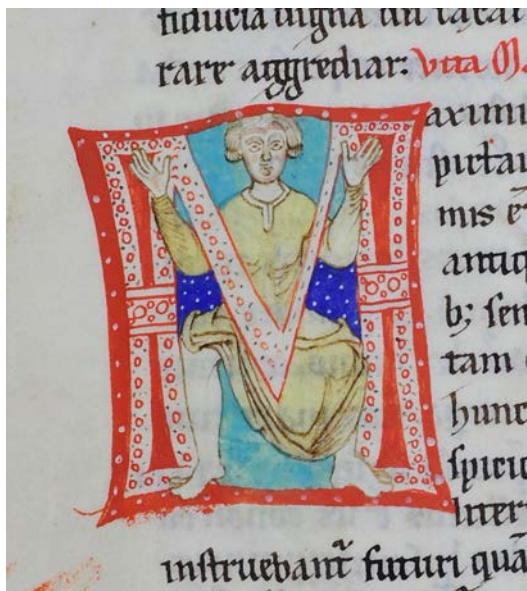 fiducia digna
rare aggrediar: Vita M
Maximi
pictaui
mis ē
antiq
b; sen
tam
hunc
spicio
litter
instruebant̃ futuri quā